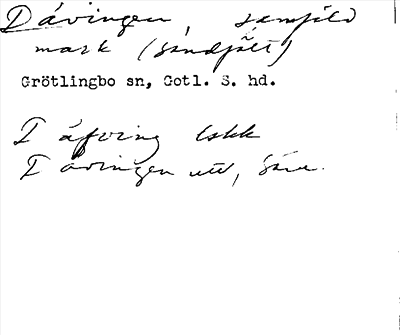 Dävingen, samfäld
mark (sandfält)
Grötlingbo sn, Gotl. S. hd.
I äfving lskk
I ävingen utt,